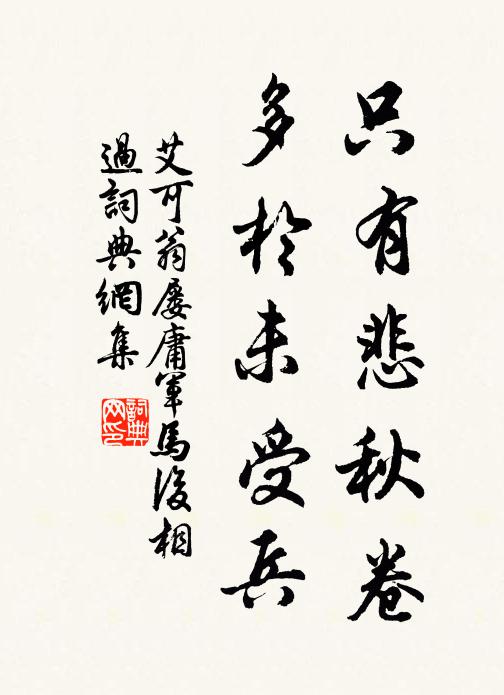 只有悲秋卷
多於未受兵
艾可翁屡庸军馬後相
過詞典網集
詞典
网印